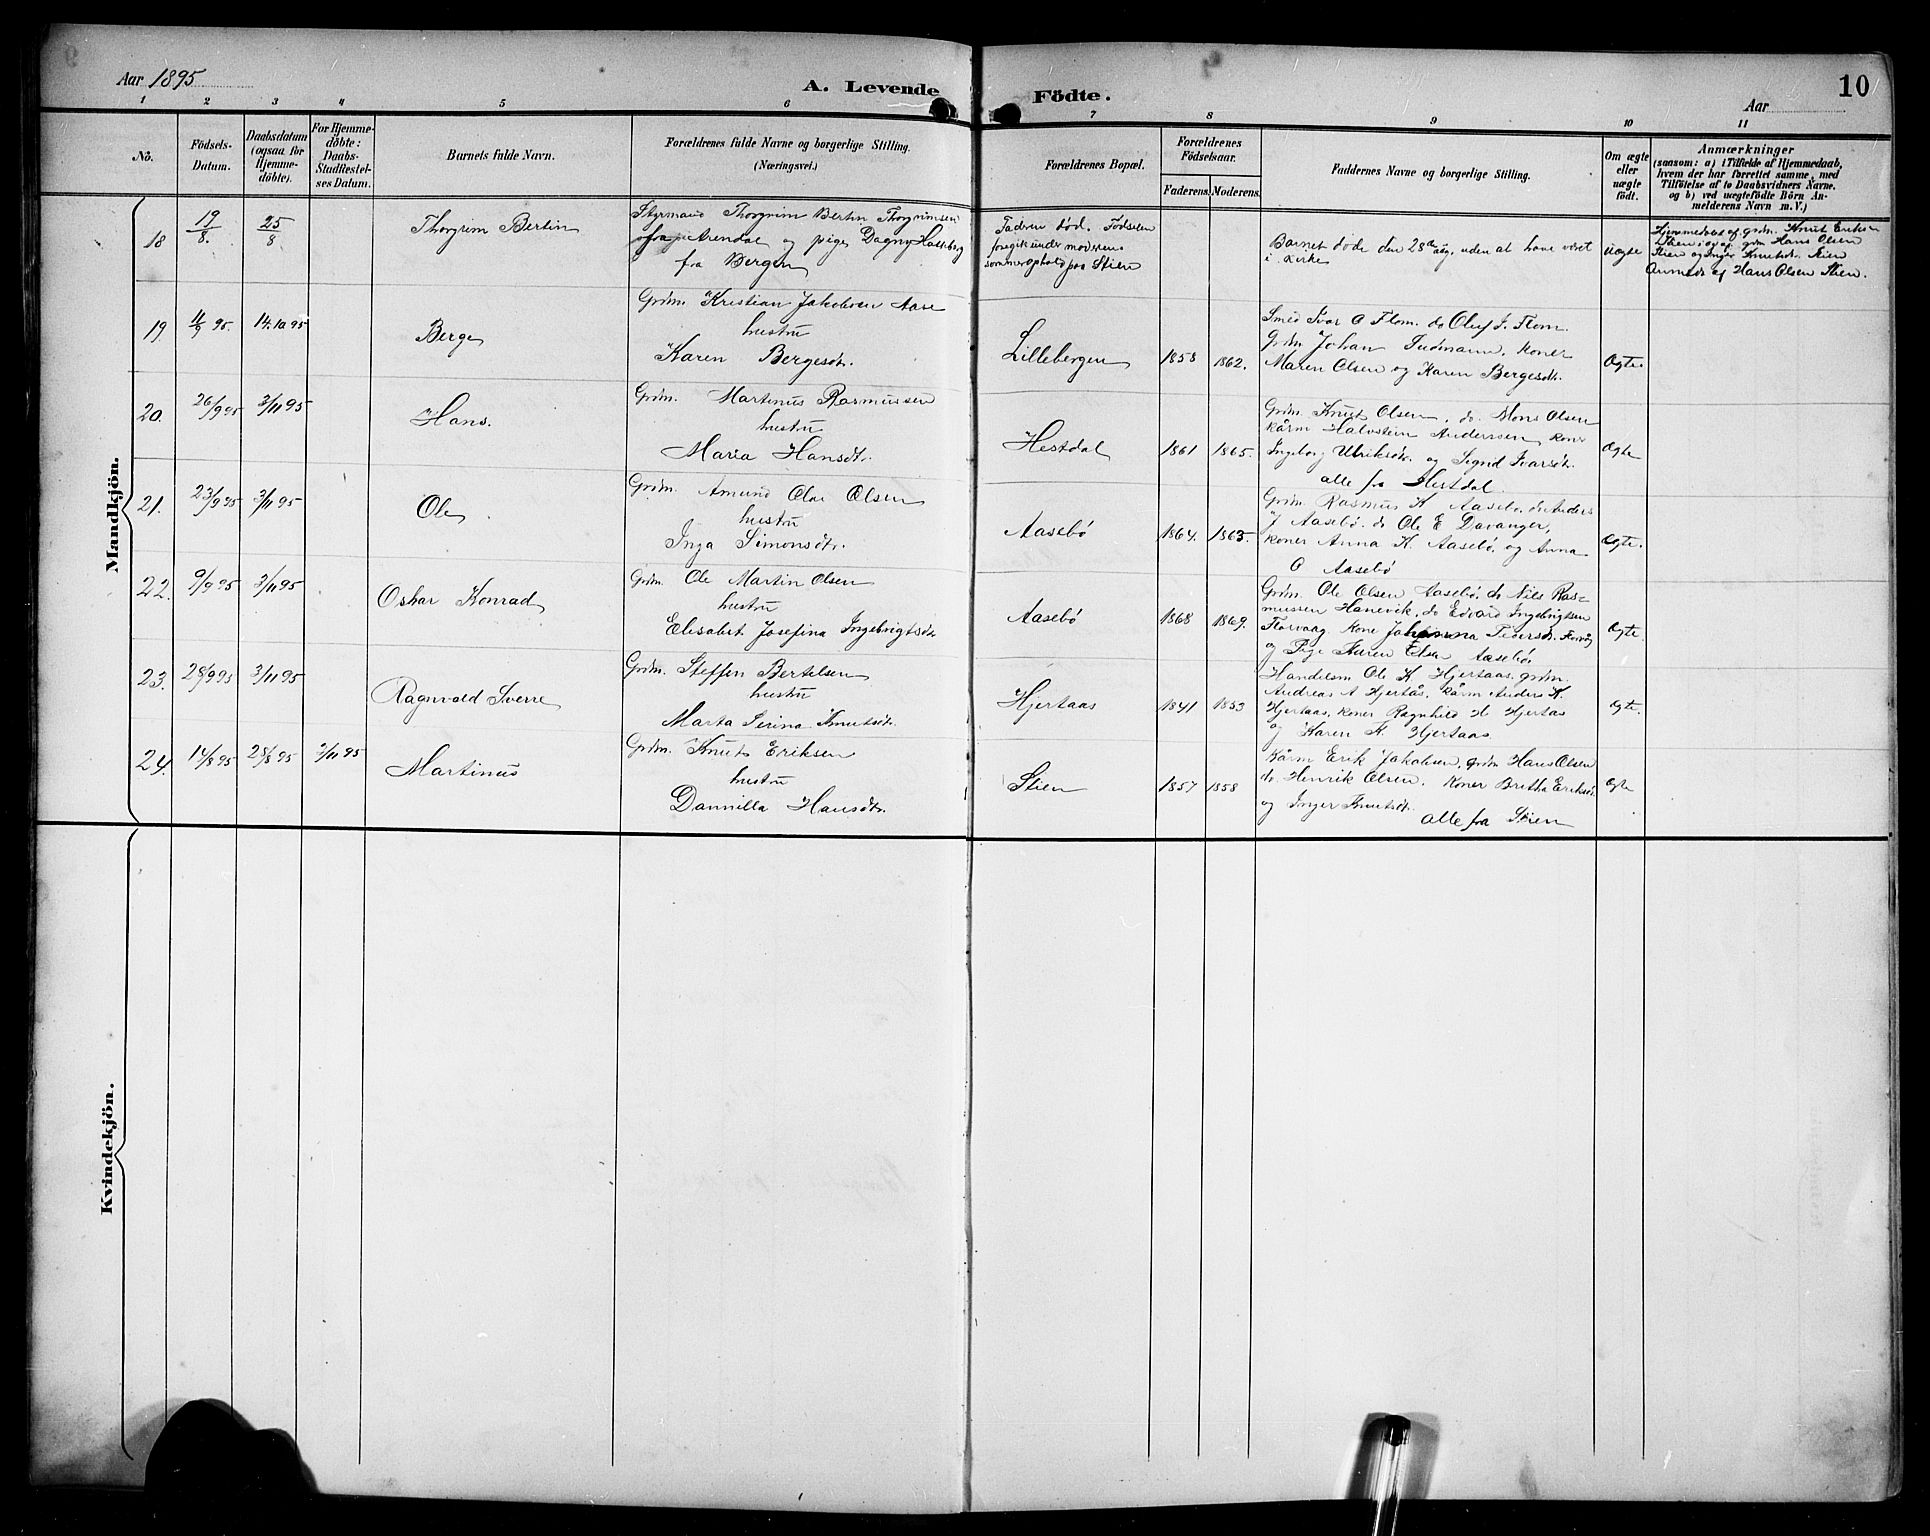 Aar 1895
A. Levende Födte.
10
Aar
1 2 3 4 5 6 7 8 9 10 11
No.
Födsels-Datum.
Daabsdatum (ogsaa for Hjemme-döbte).
For Hjemme-döbte: Daabs-Stadfæstel-ses Datum.
Barnets fulde Navn.
Forældrenes fulde Navne og borgerlige Stilling.
(Næringsvei.)
Forældrenes Bopæl.
Forældrenes Födselsaar.
Faderens. Moderens.
Faddernes Navne og borgerlige Stilling.
Om ægte eller uægte födt.
Anmærkninger
(saasom: a) i Tilfælde af Hjemmedaab,
hvem der har forrettet samme, med
Tilföielse af to Daabsvidners Navne.
og b) ved uægtefödte Börn An-
melderens Navn m. V.)
Mandkjön.
18 19/8. 25/8 Thorgrim Bertin
Styrmand Thorgrim Bertin Thorgrimsen
fra Arendal og pige Dagny
fra Bergen
Faderen död. Födselen
foregik under moderens
sommerophold paa Stien
Barnet döde den 28de aug. uden at have været
i kirke
uægte
Hjemmedøbt af grdm. Knut Eriksen
Stien og gdm Hans Olsen
Stien og Inger Knutsdt. Stien
Anmeldt af Hans Olsen Stien.
19 11/9 95. 14.10 95 Berge
Grdm. Kristian Jakobsen Aase
hustru
Karen Bergesdt.
Lillebergen 1858 1862.
Smed Ivar O Flom. do Oluf J. Flom.
Grdm Johan Tudmann. Koner
Maren Olsen og Karen Bergesdt.
Ægte.
20. 26/9 95 3/11 95 Hans.
Grdm. Martinus Rasmussen
hustru
Maria Hansdt.
Hestdal 1861 1865.
Grdm. Knut Olsen, do. Mons Olsen
kårm Halvstein Anderssen, koner
Ingeborg Ulriksdt. og Sigrid Ivarsdt.
alle fra Hestdal.
Ægte
21. 23/9 95 3/11 95 Ole
Grdm. Amund Olai Olsen
hustru
Inga Simonsdt.
Aasebö 1864. 1863.
Grdm. Rasmus K Aasebö. do Anders
J Aasebö. do Ole E Davanger,
koner Anna K. Aasebö, og Anna
O Aasebö
Ægte.
22. 9/9 95 3/11 95 Oskar Konrad
Grdm. Ole Martin Olsen
hustru
Elisabet Josefina Ingebrigtsdt
Aasebö 1868 1869.
Grdm. Ole Olsen Aasebö, do Nils Ras=
mussen Hanevik, do Edvard Ingebrigtsen
Florvaag Kone Johanna Pedersdt. Florvåg
og Pige Karen Elsa Aasebö
Ægte.
23. 28/9 95 3/11 95 Ragnvald Sverre
Grdm. Steffen Bertelsen
hustru
Marta Serina Knutsdt.
Hjertaas 1841 1853
Handelsm Ole K. Hjertaas, grdm.
Andreas A Hjertås, kårm Anders K.
Hjertaas, koner Ragnhild H Hjertås
og Karen K. Hjertaas.
Ægte.
24. 14/8 95 28/8 95 3/11 95 Martinus
Grdm. Knut Eriksen
hustru
Dannilla Hansdt.
Stien 1857 1858
Kårm Erik Jakobsen, grdm Hans Olsen
do. Henrik Olsen. Koner Britha Eriksdt.
og Inger Knutsdt.
alle fra Stien
Ægte
Kvindekjön.